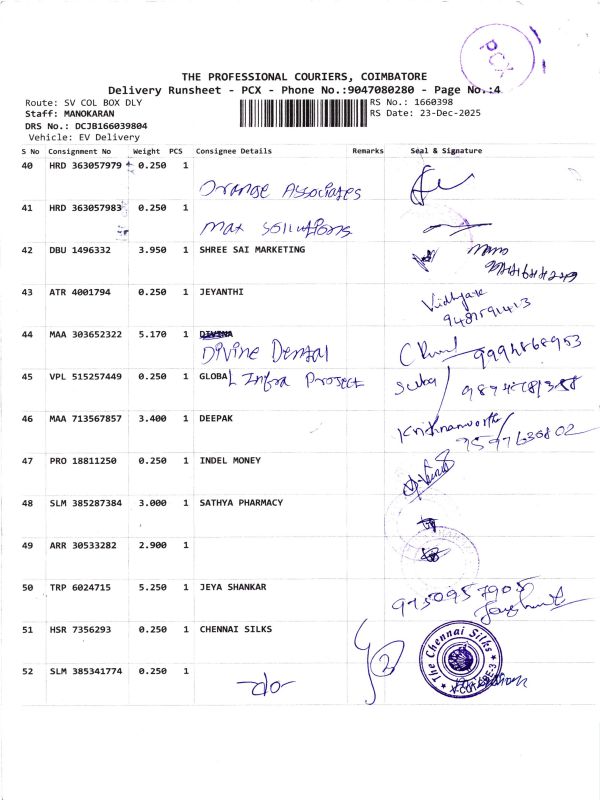 PCX
THE PROFESSIONAL COURIERS, COIMBATORE
Delivery Runsheet - PCX - Phone No.:9047080280 - Page No.:4
Route: SV COL BOX DLY
RS No.: 1660398
Staff: MANOKARAN
RS Date: 23-Dec-2025
DRS No.: DCJB166039804
Vehicle: EV Delivery
S No Consignment No Weight PCS Consignee Details Remarks Seal & Signature
40 HRD 363057979 0.250 1 Orange Associates
41 HRD 363057983 0.250 1 Max Solutions
42 DBU 1496332 3.950 1 SHREE SAI MARKETING
43 ATR 4001794 0.250 1 JEYANTHI
44 MAA 303652322 5.170 1 DIVINA
Divine Dental
45 VPL 515257449 0.250 1 GLOBAL Infra Project
46 MAA 713567857 3.400 1 DEEPAK
47 PRO 18811250 0.250 1 INDEL MONEY
48 SLM 385287384 3.000 1 SATHYA PHARMACY
49 ARR 30533282 2.900 1
50 TRP 6024715 5.250 1 JEYA SHANKAR
51 HSR 7356293 0.250 1 CHENNAI SILKS
2
The Chennai Silks
52 SLM 385341774 0.250 1 -do-